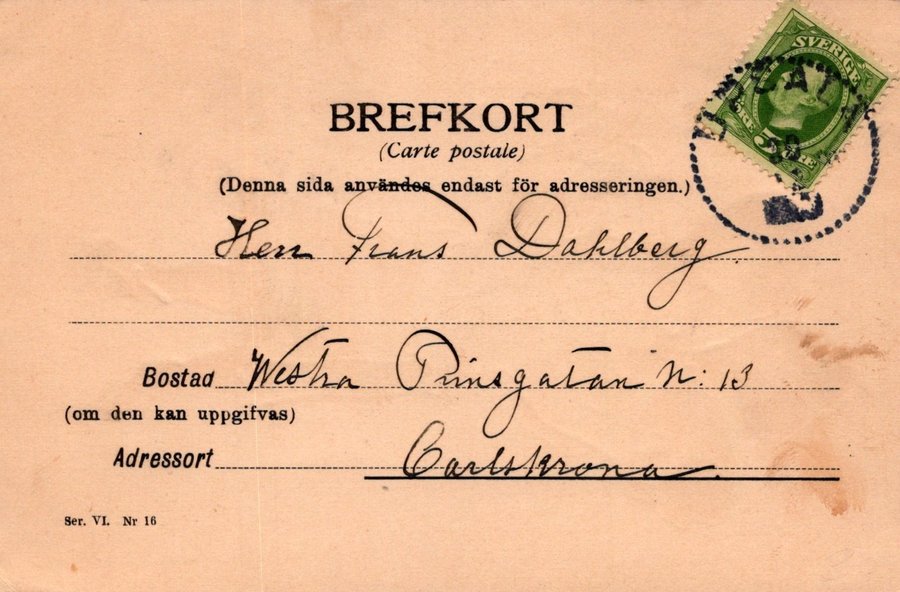 BREFKORT
(Carte postale)
(Denna sida användes endast för adresseringen.)
SVERIGE
5
Herr Frans Dahlberg.
Bostad Westra Prinsgatan N: 13
(om den kan uppgifvas)
Adressort Carlskrona.
Ser. VI. Nr 16